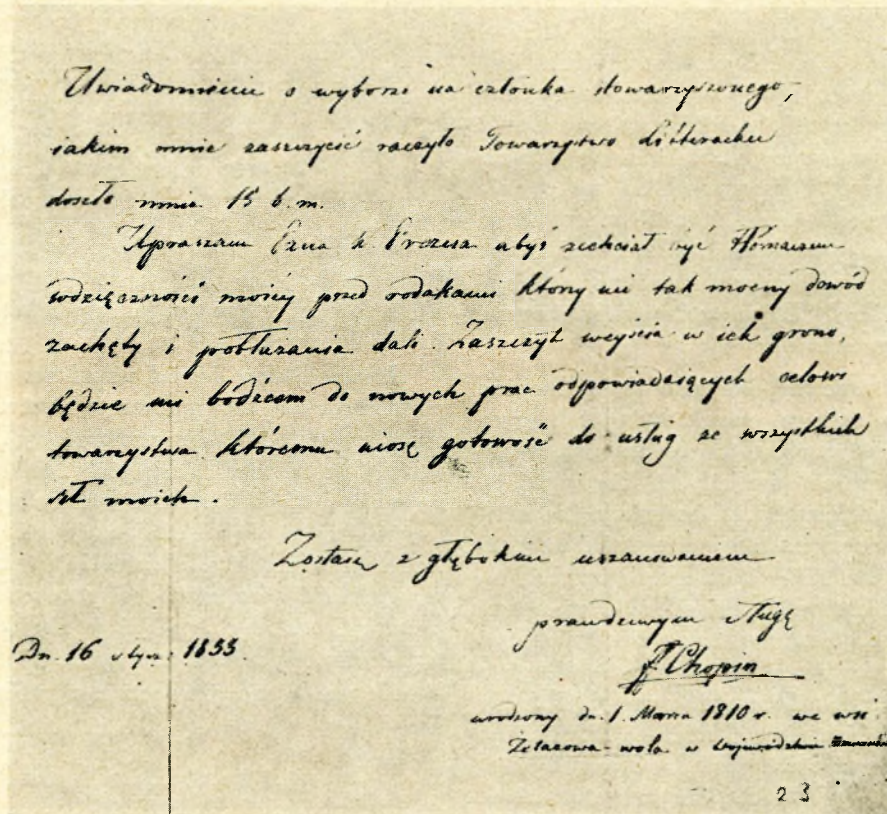 Uwiadomienie o wyborze na członka stowarzyszonego,
iakim mnie zaszczycić raczyło Towarzystwo Litterackie
doszło mnie 15 b.m.
Upraszam Pana h. Prezesa abyś zechciał być tłomaczem
wdzięczności moiéy przed rodakami który mi tak mocny dowód
zachęty i pobłużania dali. Zaszczyt weyścia w ich grono,
będzie mi bodźcem do nowych prac odpowiadaiących celowi
towarzystwa któremu niosę gotowość do usług ze wszystkich
sił moich.
Zostaię z głębokim uszanowaniem
prawdziwym sługą
FF Chopin
Dn. 16 stycz: 1833.
urodzony dn. 1. Marca 1810 r. we wsi
Żelazowa-wola w Województwie
23